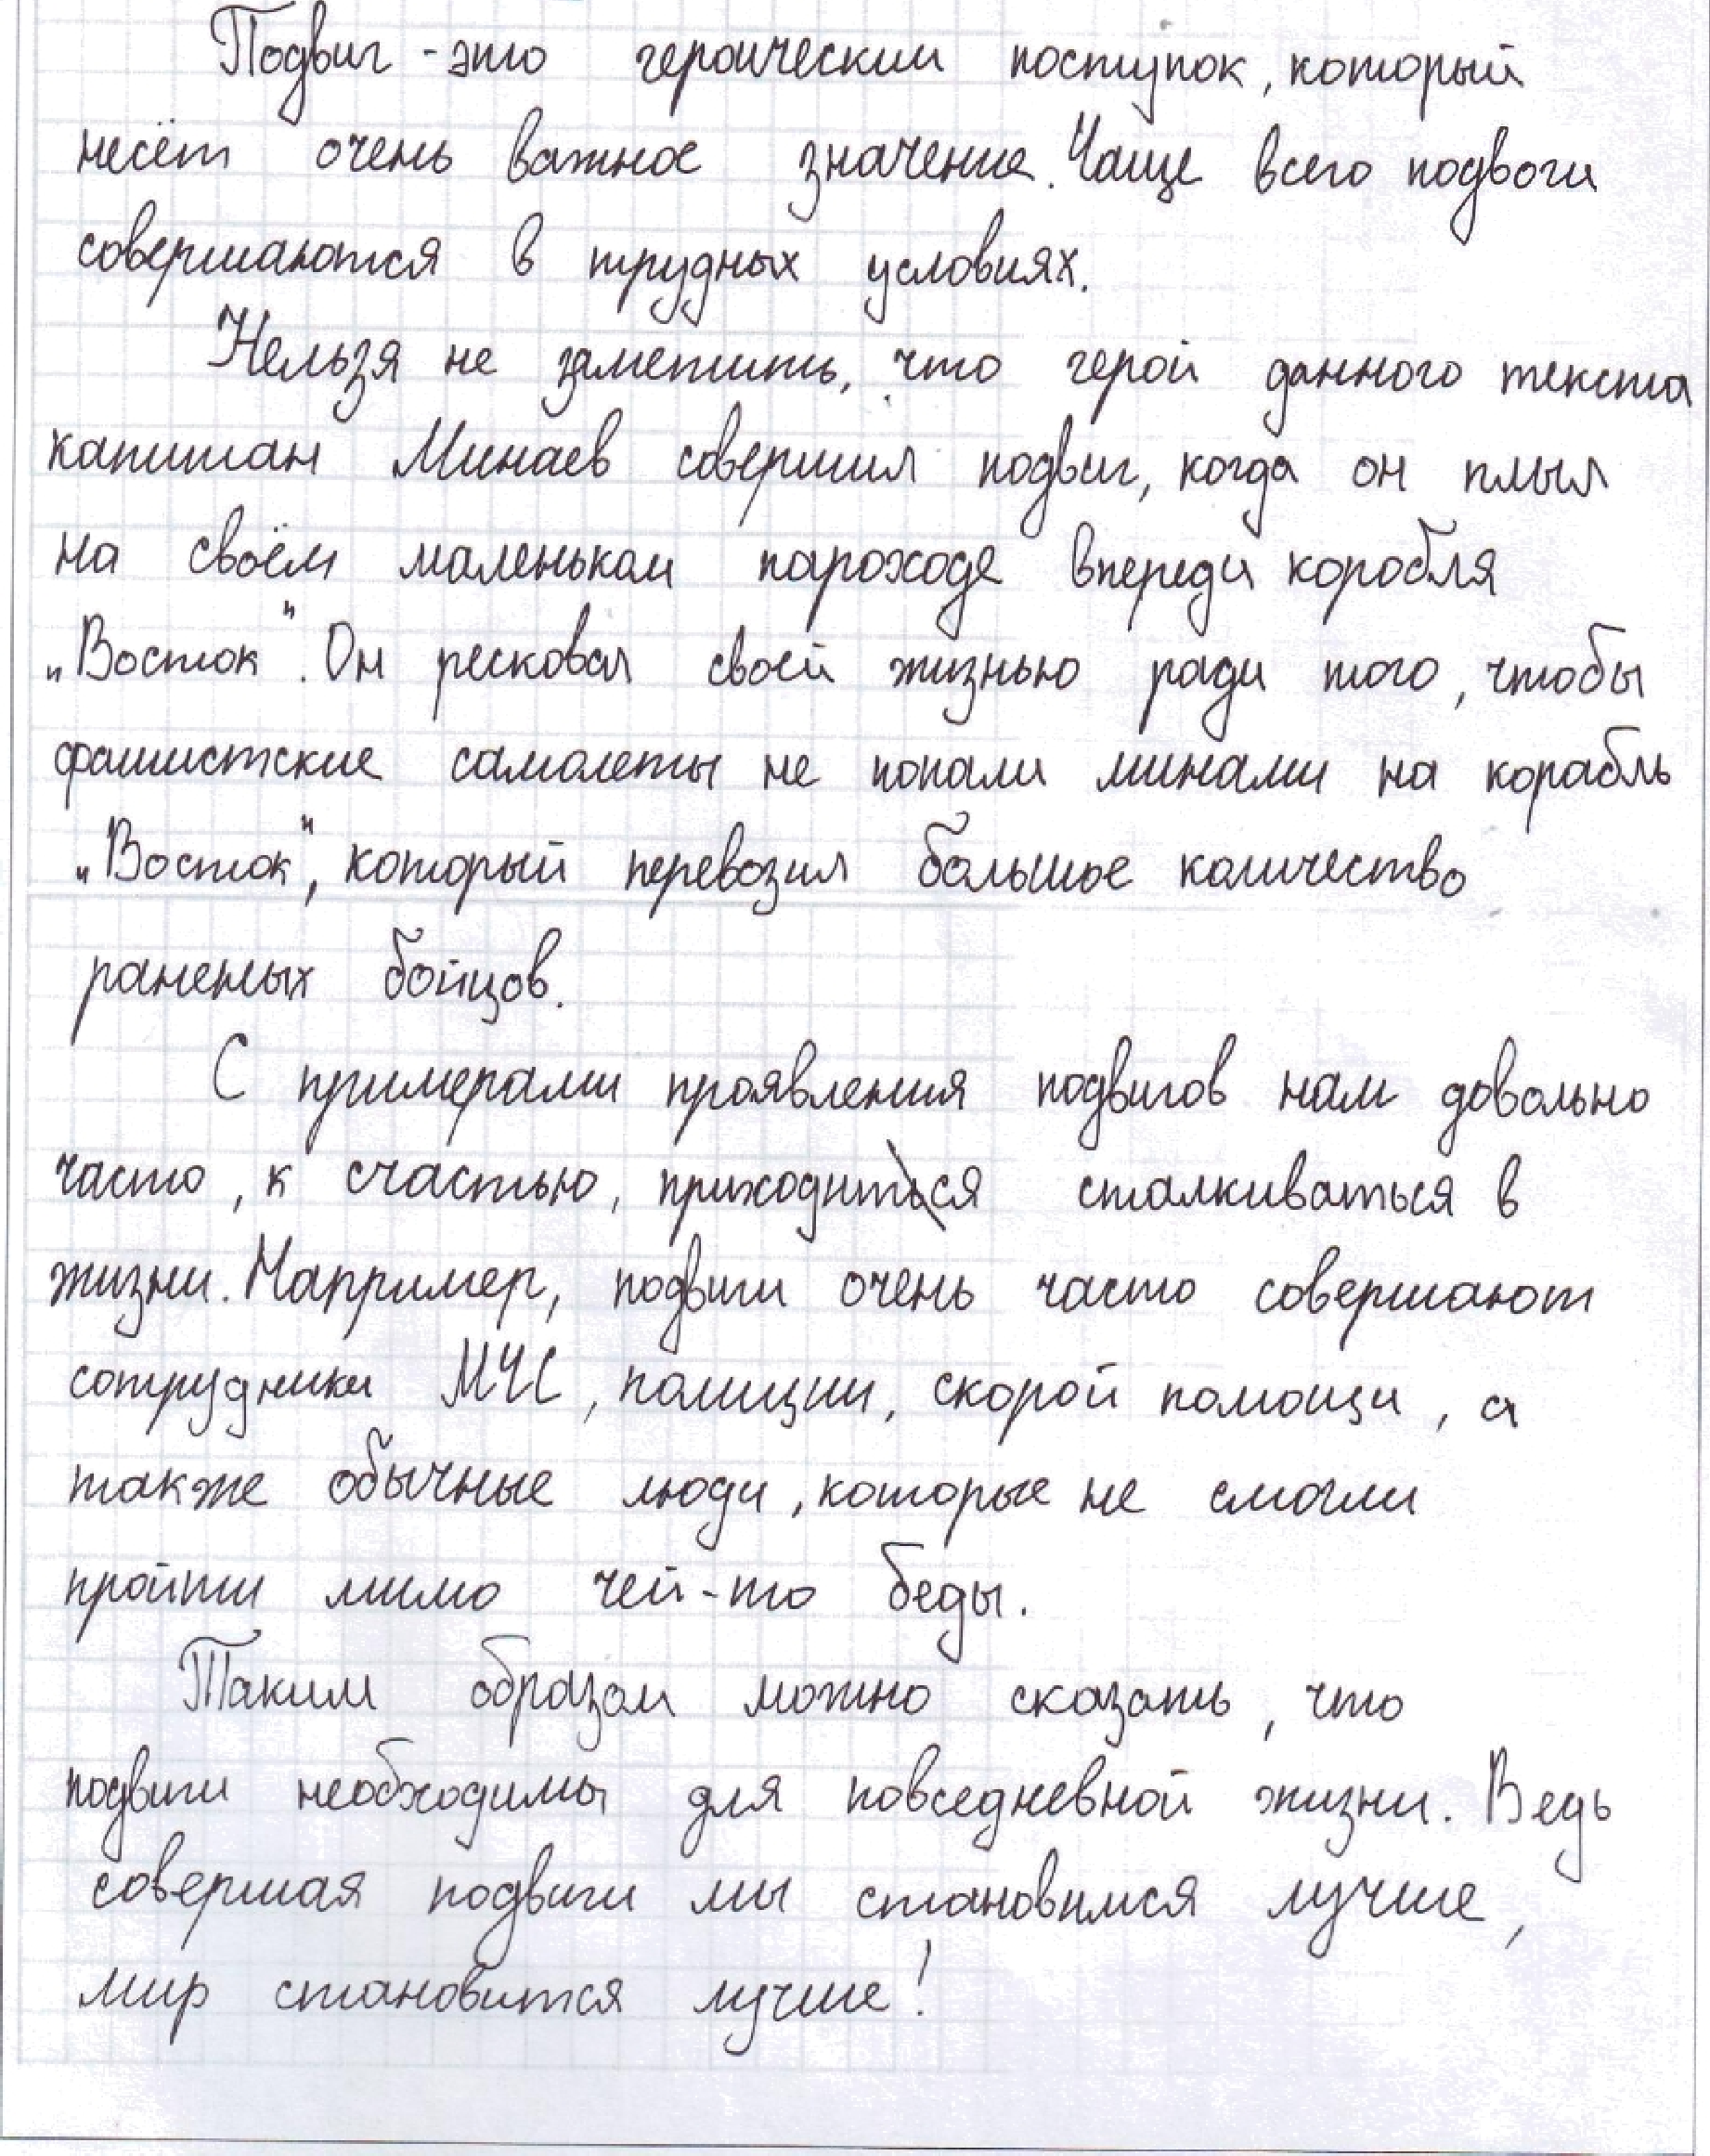 Подвиг - это героический поступок, который
несёт очень важное значение. Чаще всего подвоги
совершаются в трудных условиях.
Нельзя не заметить, что герой данного текста
капитан Минаев совершил подвиг, когда он плыл
на своём маленьком пароходе впереди коробля
„Восток". Он ресковал своей жизнью ради того, чтобы
фашистские самолеты не попали минами на корабль
„Восток", который перевозил большое количество
раненых бойцов.
С примерами проявления подвигов нам довольно
часто, к счастью, приходится сталкиваться в
жизни. Например, подвиги очень часто совершают
сотрудники МЧС, полиции, скорой помощи, а
также обычные люди, которые не смогли
пройти мимо чей-то беды.
Таким образом можно сказать, что
подвиги необходимы для повседневной жизни. Ведь
совершая подвиги мы становимся лучше,
мир становится лучше!